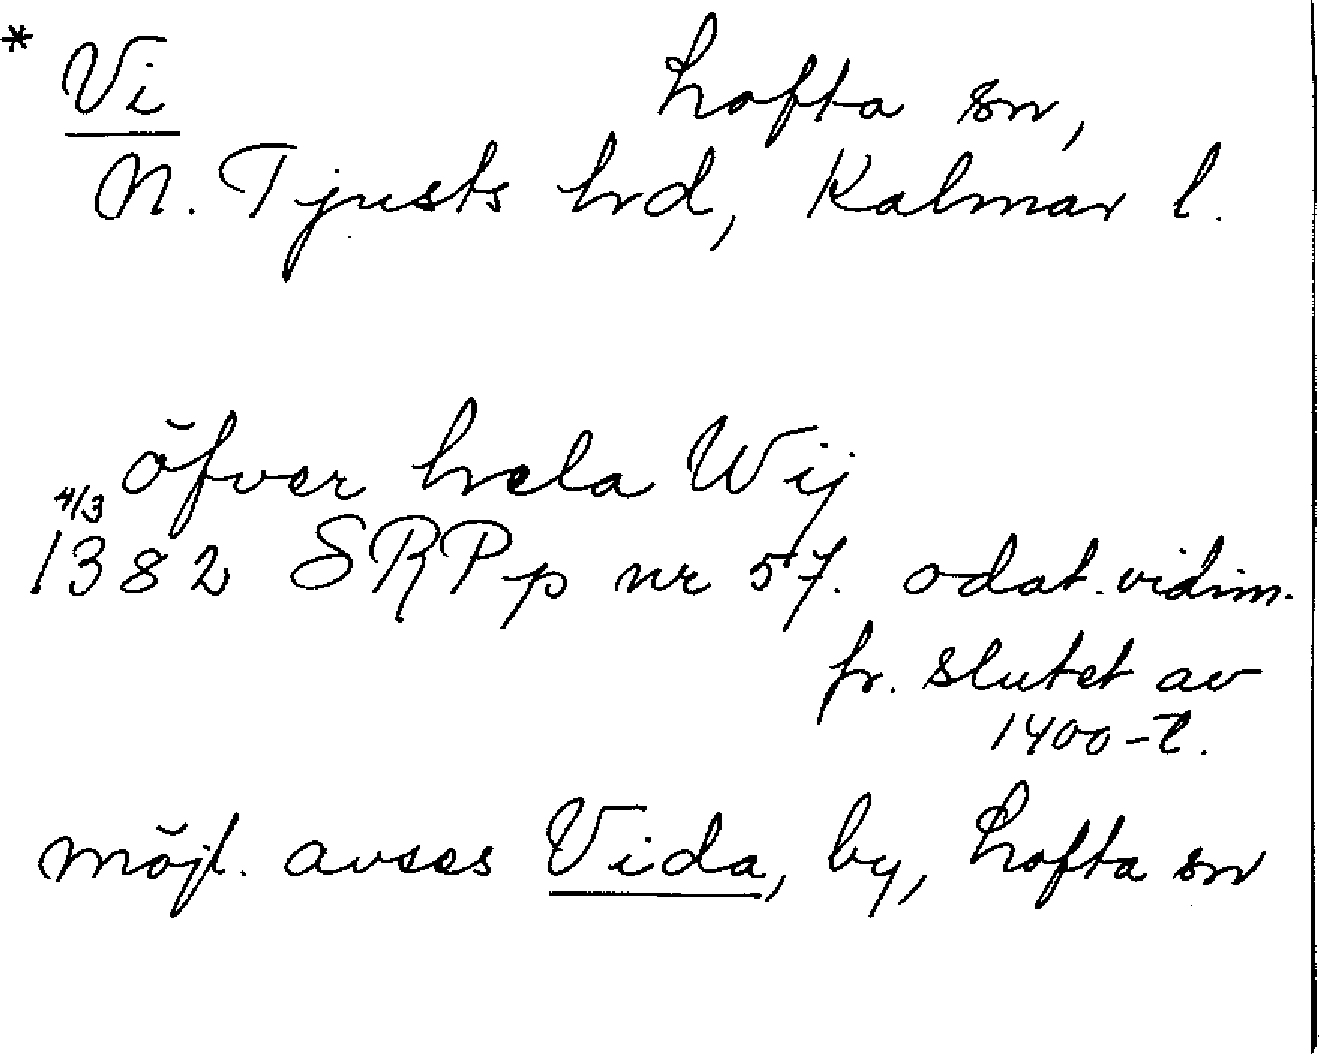 * Vi Lofta sn,
N. Tjusts hrd, Kalmar l.
öfver hela Wij
4/3
1382 SRPp nr 57. odat. vidim.
fr. slutet av
1400-t.
möjl. avses Vida, by, Lofta sn